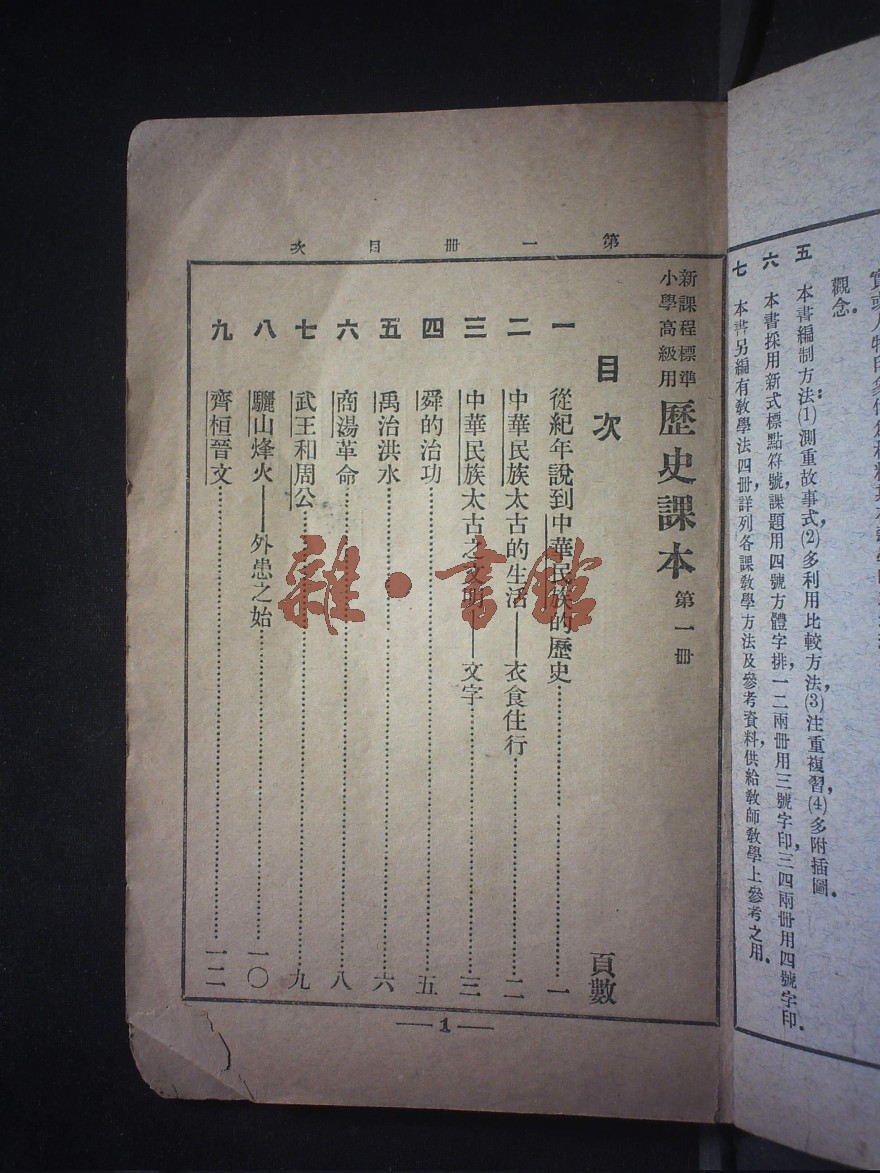 觀念。
五 本書編制方法：(1)測重故事式，(2)多利用比較方法，(3)注重複習，(4)多附插圖。
六 本書採用新式標點符號，課題用四號方體字排，一二兩冊用三號字印，三四兩冊用四號字印。
七 本書另編有教學法四冊，詳列各課教學方法及參考資料，供給教師教學上參考之用。
第一冊目次
新課程標準
小學高級用
歷史課本 第一冊
目次 頁數
一 從紀年說到中華民族的歷史……一
二 中華民族太古的生活——衣食住行……二
三 中華民族太古之文明——文字……三
四 舜的治功……五
五 禹治洪水……六
六 商湯革命……八
七 武王和周公……九
八 驪山烽火——外患之始……一〇
九 齊桓晉文……一二
—1—
雜·書館